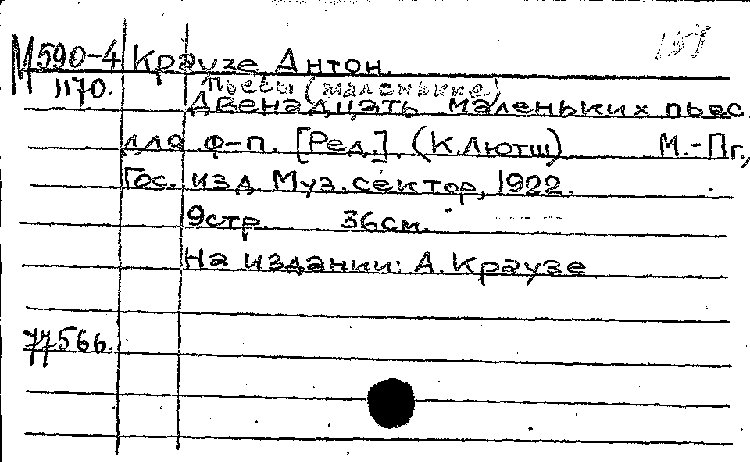 М 590-4 Краузе, Антон.
1170. Пьесы (маленькие)
Двенадцать маленьких пьес
для ф-п. [Ред.]. (К. Лютш) М.-Пг.,
Гос. изд. Муз. сектор, 1922.
9 стр. 36 см.
На издании: А. Краузе
77566.